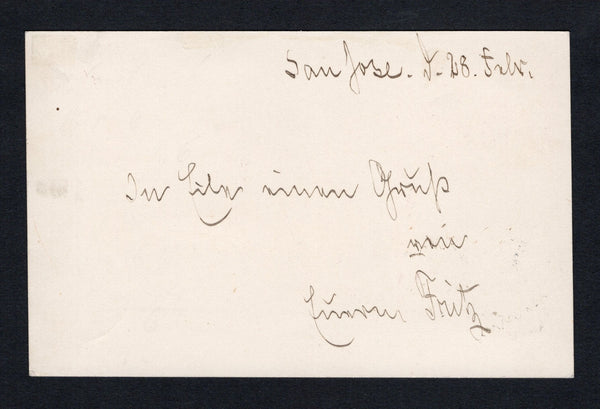 San Jose. d. 28. Febr.
In Eile einen Gruß
von
Eurem Fritz